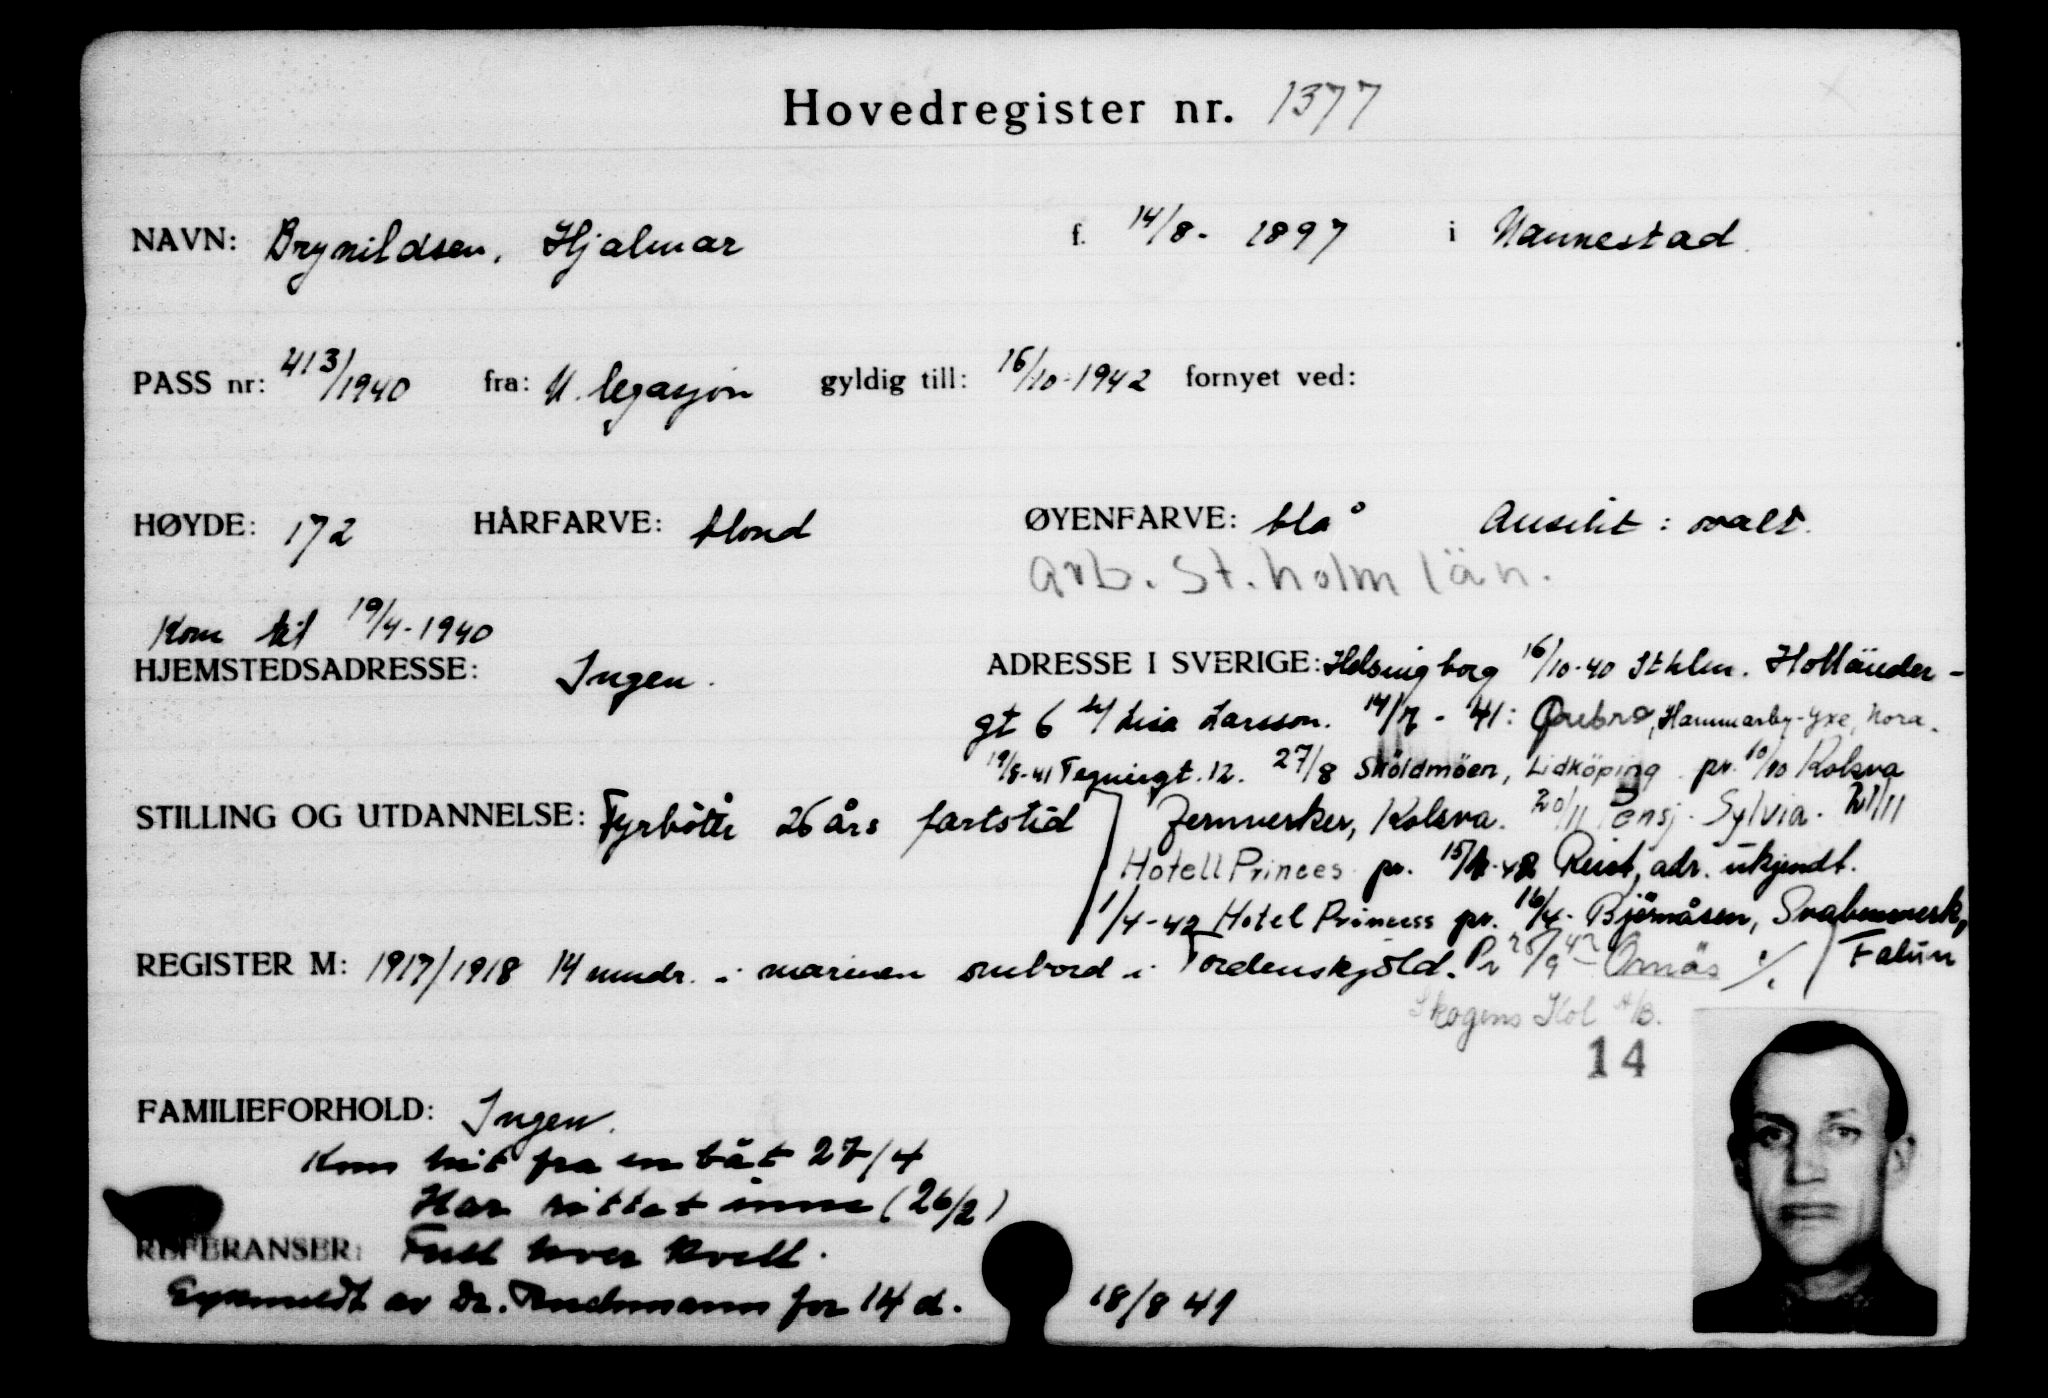 Hovedregister nr. 1377
NAVN: Brynildsen, Hjalmar f. 14/8- 1897 i Nannestad
PASS nr: 413/1940 fra: N. legasjon gyldig till: 16/10-1942 fornyet ved:
HØYDE: 172 HÅRFARVE: blond ØYENFARVE: blå Ansikt: ovalt.
arb. St.holm län.
Kom hit 19/4-1940
HJEMSTEDSADRESSE: Ingen. ADRESSE I SVERIGE: Helsingborg 16/10-40 Sthlm. Holländer-
gt 6 Lisa Larsson. 14/7 - 41: Örebro, Hammarby-Yxe, Nora.
19/8-41 Tegnérgt. 12. 27/8 Sköldmöen, Lidköping pr. 10/10 Kolsva
STILLING OG UTDANNELSE: Fyrbøter 26 års fartstid Jernverker, Kolsva. 20/11 Pensj. Sylvia. 21/11
Hotell Princes pr. Reist, adr. ukjendt.
1/4-42 Hotel Princess pr. 16/4- Björnåsen, Svabensverk,
REGISTER M: 1917/1918 14 mndr. i marinen ombord i Tordenskjold. Pr 25/9 42 Ornäs Falun
Skogens Kol A/B.
14
FAMILIEFORHOLD: Ingen.
Kom hit fra en båt 27/4
Har sittet inne (26/2)
REFERANSER: Full hver kvell.
Sykmeldt av Dr. for 14 d. 18/8 41